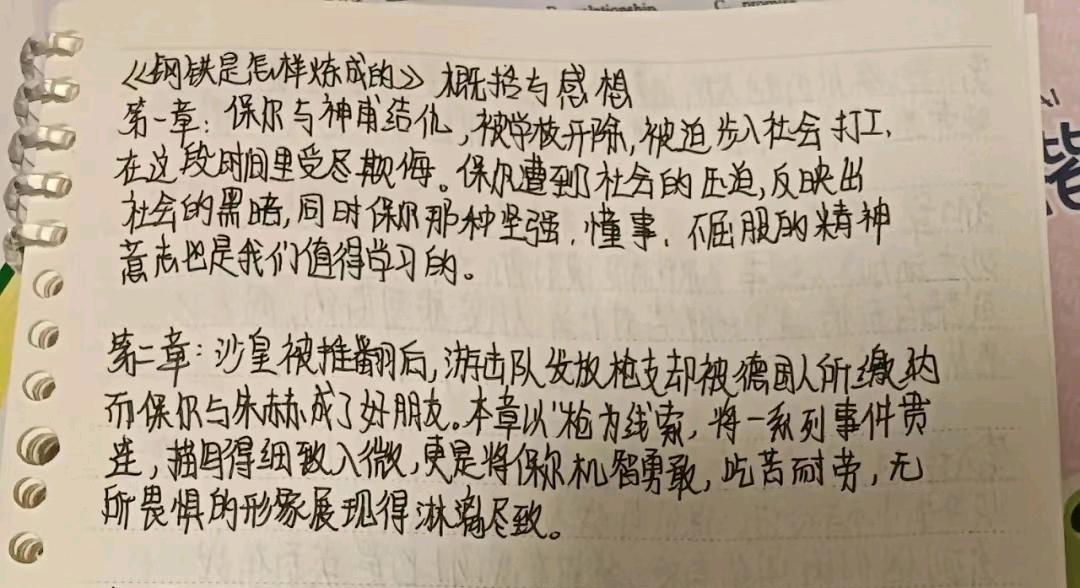 《钢铁是怎样炼成的》概括与感想
第一章：保尔与神甫结仇，被学校开除，被迫步入社会打工，
在这段时间里受尽欺侮。保尔遭到了社会的压迫，反映出
社会的黑暗，同时保尔那种坚强、懂事、不屈服的精神
意志也是我们值得学习的。
第二章：沙皇被推翻后，游击队发放枪支却被德国人所缴纳
而保尔与朱赫成了好朋友。本章以"枪为线索，将一系列事件贯
连，描写得细致入微，更是将保尔机智勇敢，吃苦耐劳，无
所畏惧的形象展现得淋漓尽致。